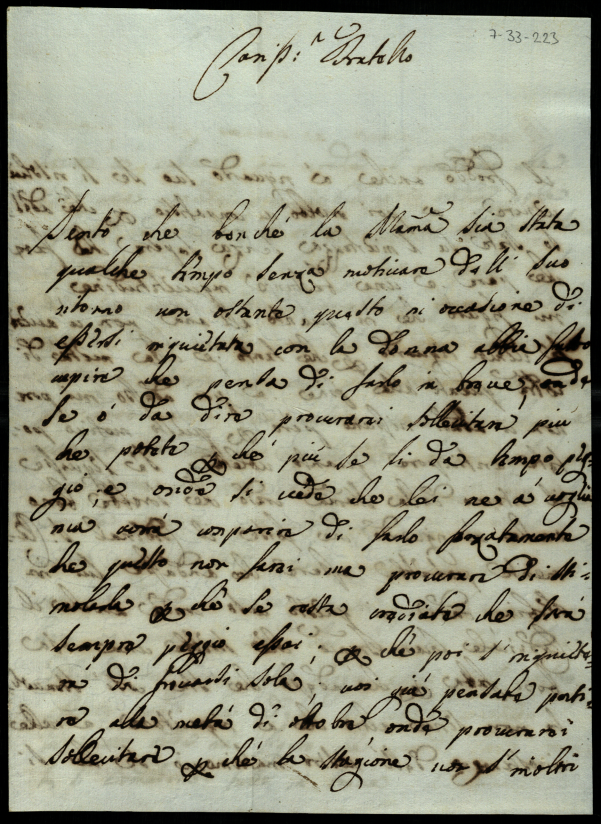 7-33-223
Cariss:r Fratello
Sento, che benché la Mamã sia stata
qualche tempo senza motivare dell suo
ritorno non ostante questo in occasione di
essersi inquietata con la donna abbia fatto
capire che pensa di farlo in breve, onde
se ó da dire procurarei sollecitare piú
che potete, p ché piú se li da tempo peg-
gio, e onde si vede che lei ne á voglia
ma vorrá comparire di farlo forzatamente
che questo non farei ma procurare di sti-
molarla p ché se resta crediate che sará
sempre peggio assai, p ché poi s'inquieta-
rá di trovarsi sola; voi giá pensate parti-
re alla metá di ottobre onde procurarei
sollecitare p ché la stagione non s'inoltri